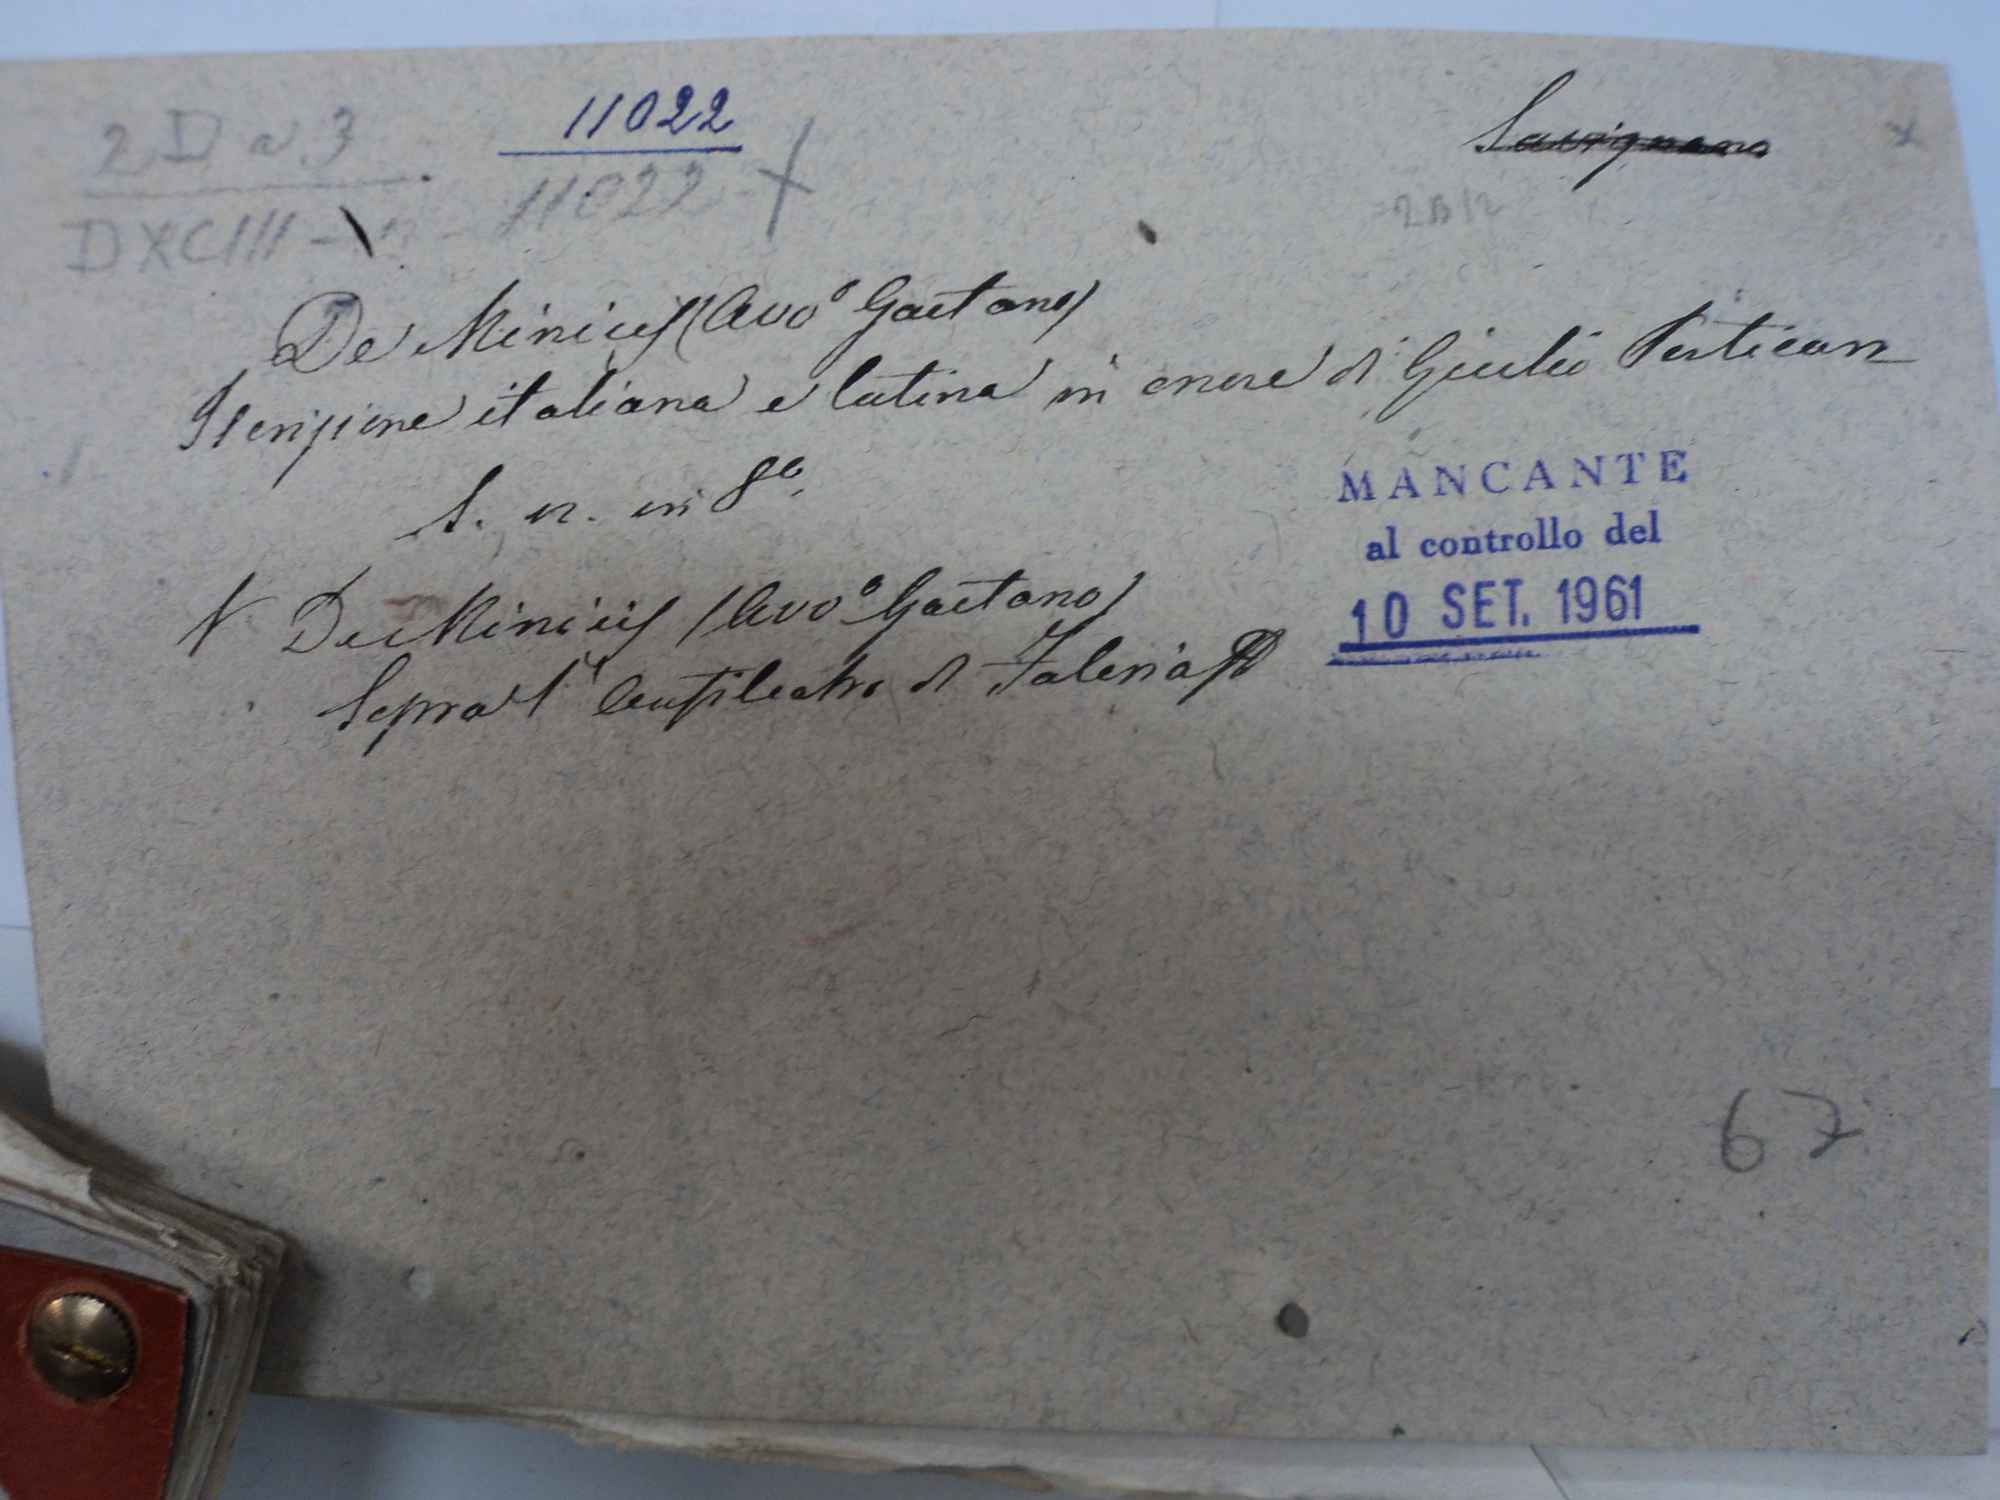 2 D n. 3
11022
Savignano
DXCIII -
11022
2B12
De Minicis (Avvo Gaetano)
Iscrizione italiana e latina in onore di Giulio Perticari
S. n. in 8o.
MANCANTE
al controllo del
10 SET. 1961
V. De Minicis (Avvo Gaetano)
Sopra l'Anfiteatro di Faleria
67